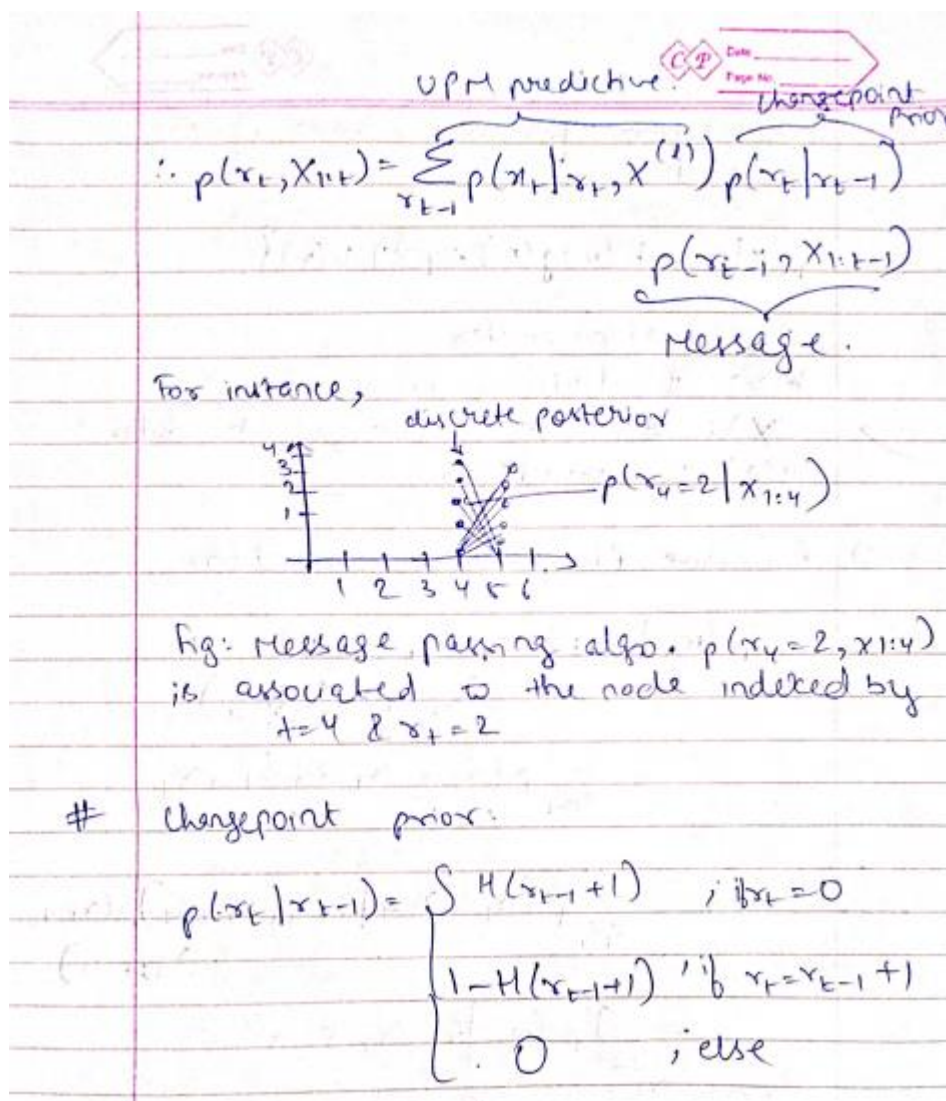 C P Date
Page No.
UPM predictive.
changepoint
prior
∴ p(r_t, X_{1:t}) = Σ_{r_{t-1}} p(x_t | r_t, X^{(l)}) p(r_t | r_{t-1})
p(r_{t-1}, X_{1:t-1})
Message.
For instance,
discrete posterior
4
3
2
1
p(r_4=2 | x_{1:4})
1 2 3 4 5 6
Fig: Message passing algo. p(r_4=2, x_{1:4})
is associated to the node indexed by
t=4 & r_t=2
# Changepoint prior:
p(r_t | r_{t-1}) = { H(r_{t-1}+1) ; if r_t=0
1-H(r_{t-1}+1) ' if r_t=r_{t-1}+1
0 ; else